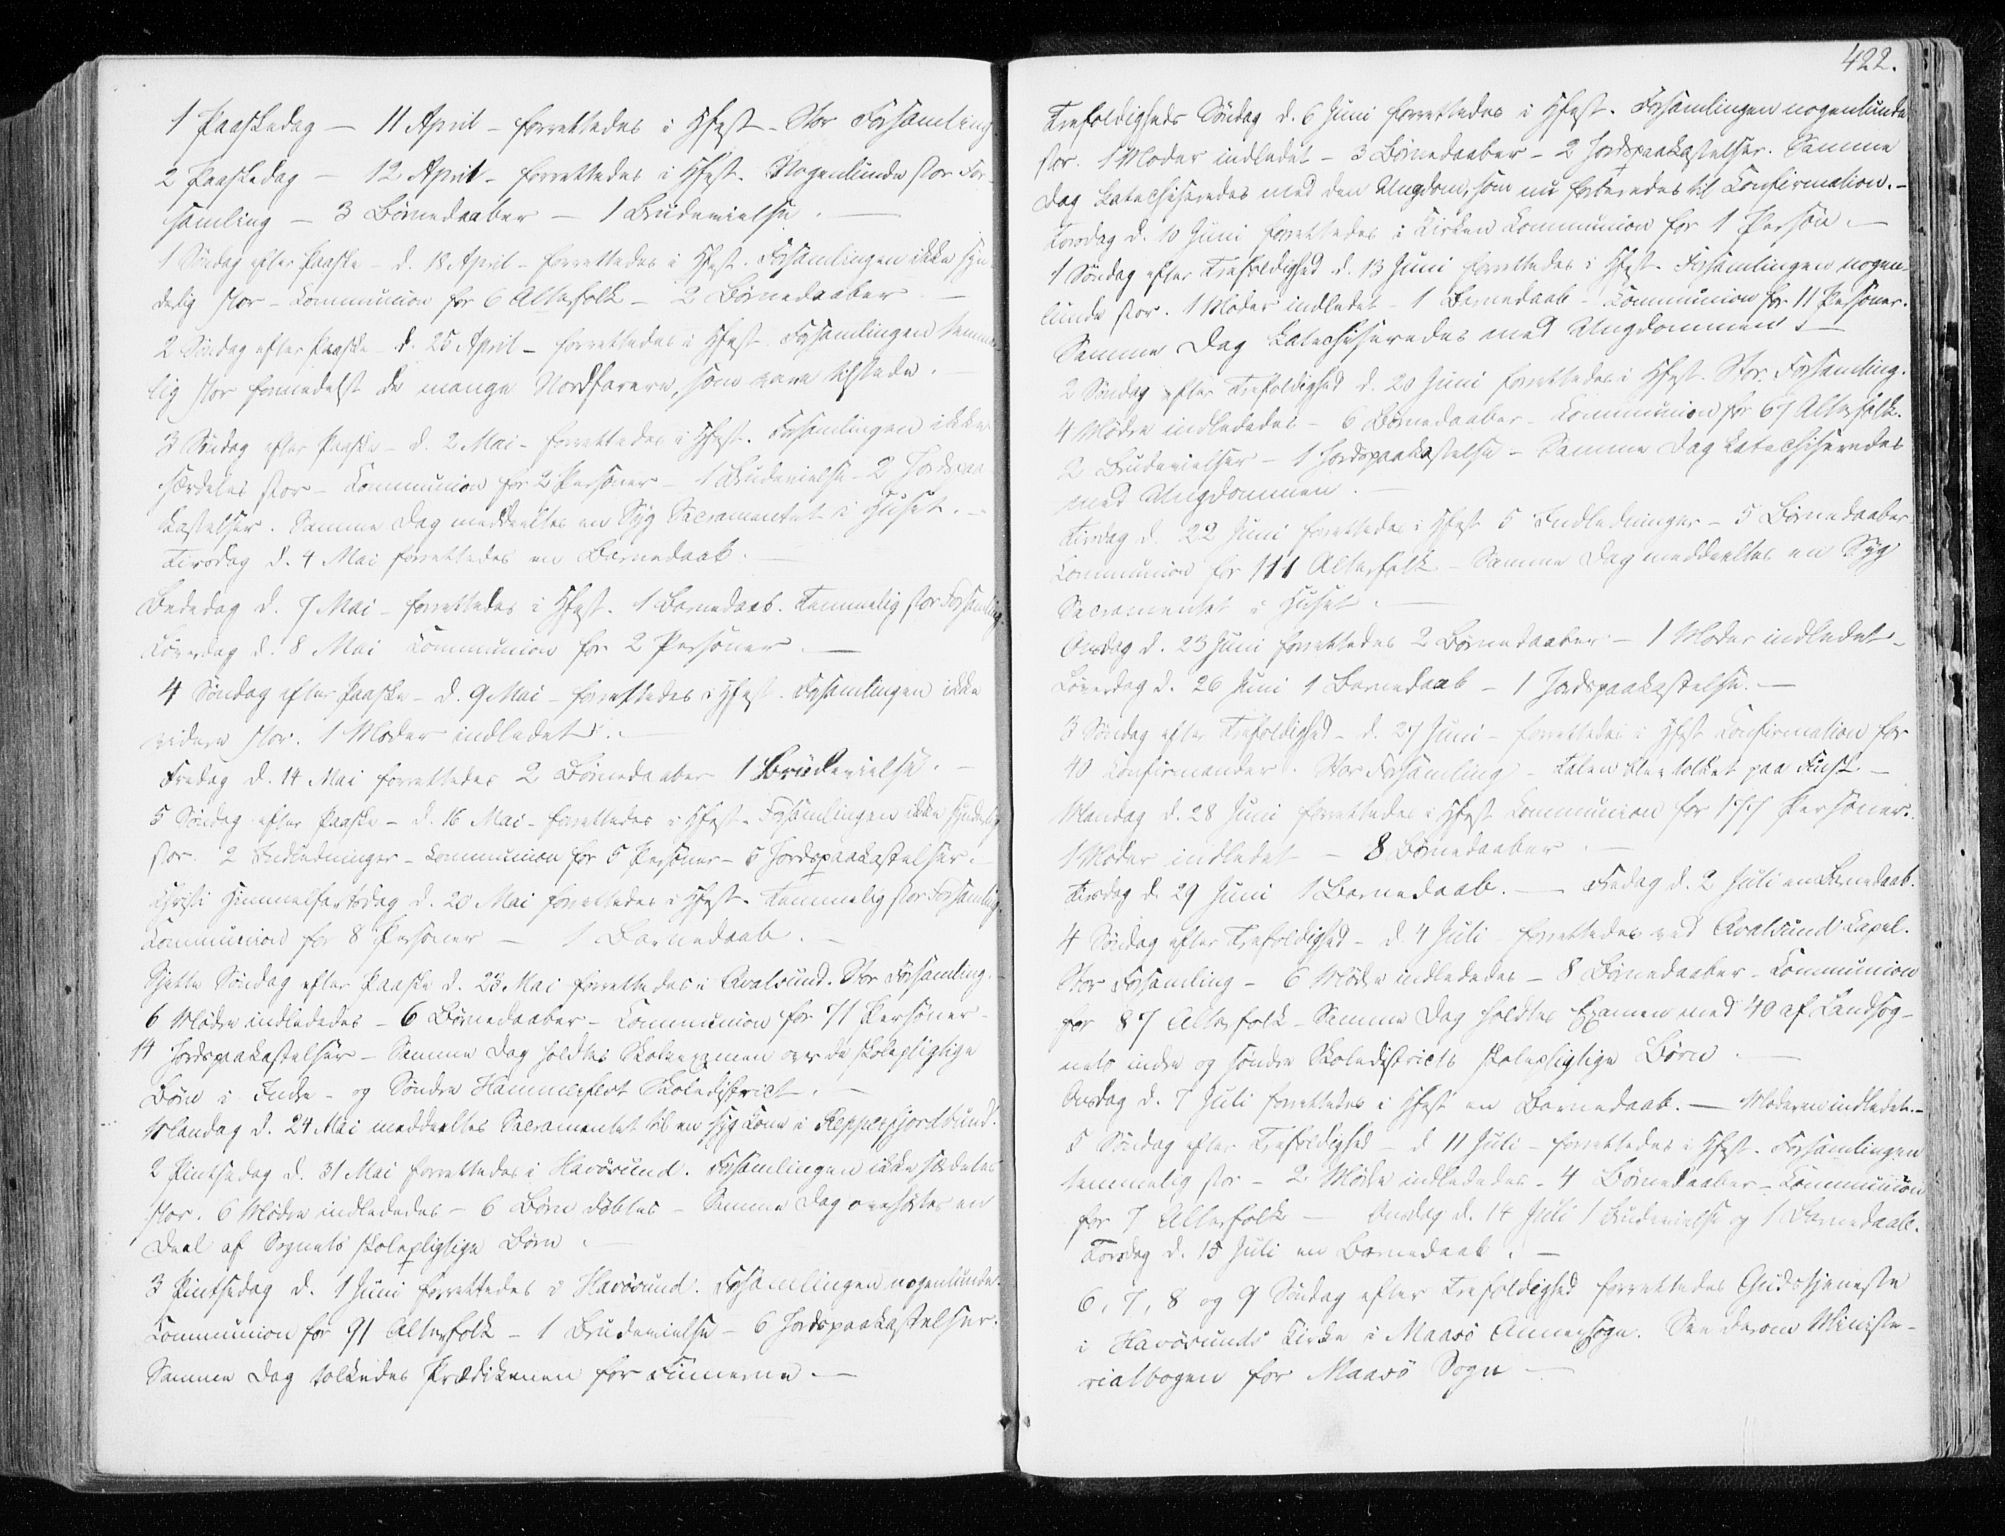 1 Paaskedag — 11 April – forrettedes i Hfest – Stor Forsamling.
2 Paaskedag — 12 April – forrettedes i Hfest. Nogenlunde stor For-
samling — 3 Børnedaaber — 1 Brudevielse.
1 Søndag efter Paaske – d. 18 April – forrettedes i Hfest. Forsamlingen ikke syn-
delig stor – Communion for 6 Altersfolk – 2 Børnedaaber. —
2 Søndag efter Paaske – d. 25 April – forrettedes i Hfest – Forsamlingen temme-
lig stor formedelst de mange Nordfarere, som vare tilstede. —
3 Søndag efter Paaske – d. 2 Mai – forrettedes i Hfest. Forsamlingen ikke
særdeles stor – Communion for 2 Personer – 1 Brudevielse – 2 Jordspaa
kastelser. Samme Dag meddeeltes en Syg Sacramentet i Huset. —
Tirsdag d. 4 Mai forrettedes en Barnedaab. —
Bededag d. 7 Mai – forrettedes i Hfest. 1 Barnedaab. Temmelig stor Forsamling
Løverdag d. 8 Mai Communion for 2 Personer. —
4 Søndag efter Paaske – d. 9 Mai – forrettedes i Hfest. Forsamlingen ikke
videre stor. 1 Moder indledet. —
Fredag d. 14 Mai forrettedes 2 Børnedaaber 1 Brudevielse. —
5 Søndag efter Paaske – d. 16 Mai – forrettedes i Hfest – Forsamlingen ikke synderlig
stor. 2 Indledninger – Communion for 5 Personer – 5 Jordspaakastelser. —
Christi Himmelfartsdag d. 20 Mai forrettedes i Hfest. Temmelig stor Forsamling.
Communion for 8 Personer — 1 Barnedaab. —
Sjette Søndag efter Paaske d. 23 Mai forrettedes i Qvalsund. Stor Forsamling. —
6 Mødre indlededes – 6 Børnedaaber – Communion for 71 Personer –
14 Jordspaakastelser – Samme Dag holdtes Skoleexamen over de skolepligtige
Børn i Indre – og Søndre Hammerfest Skoledistrict. —
Mandag d. 24 Mai meddeeltes Sacramentet til en syg Kone i Repperfjordbund.
2 Pintsedag d. 31 Mai forrettedes i Havøsund. Forsamlingen ikke særdeles
stor. 6 Mødre indlededes – 6 Børn døbtes – Samme Dag overhørtes en
Deel af Sognets skolepligtige Børn. —
3 Pintsedag d. 1 Juni forrettedes i Havøsund. Forsamlingen nogenlunde.
Communion for 91 Altersfolk – 1 Brudevielse – 6 Jordspaakastelser.
Samme Dag tolkedes Prædikenen for Finnerne. —
422.
Trefoldigheds Søndag d. 6 Juni forrettedes i Hfest. Forsamlingen nogenlunde
stor. 1 Moder indledet – 3 Børnedaaber – 2 Jordspaakastelser. Samme
Dag Catechiseredes med den Ungdom, som nu forberedes til Confirmation. —
Torsdag d. 10 Juni forrettedes i Kirken Communion for 1 Person. —
1 Søndag efter Trefoldighed d. 13 Juni forrettedes i Hfest. Forsamlingen nogen-
lunde stor. 1 Moder indledet – 1 Barnedaab – Communion for 11 Personer.
Samme Dag Catechiseredes med Ungdommen. —
2 Søndag efter Trefoldighed d. 20 Juni forrettedes i Hfest. Stor Forsamling.
4 Mødre indlededes – 6 Børnedaaber – Communion for 67 Altersfolk.
2 Brudevielser – 1 Jordspaakastelse – Samme Dag Catechiseredes
med Ungdommen. —
Tirsdag d. 22 Juni forrettedes i Hfest 5 Indledninger – 5 Børnedaaber
Communion for 111 Altersfolk – Samme Dag meddeeltes en Syg
Sacramentet i Huset. —
Onsdag d. 23 Juni forrettedes 2 Børnedaaber – 1 Moder indledet –
Løverdag d. 26 Juni 1 Barnedaab – 1 Jordspaakastelse. —
3 Søndag efter Trefoldighed – d. 27 Juni – forrettedes i Hfest Confirmation for
40 Confirmander. Stor Forsamling – Talen blev tolket paa Finsk —
Mandag d. 28 Juni forrettedes i Hfest Communion for Personer.
1 Moder indledet — 8 Børnedaaber. —
Tirsdag d. 29 Juni 1 Barnedaab. — Fredag d. 2 Juli en Barnedaab.
4 Søndag efter Trefoldighed – d. 4 Juli – forrettedes ved Qvalsund Capel.
Stor Forsamling – 6 Mødre indlededes – 8 Børnedaaber – Communion
for 87 Altersfolk – Samme Dag holdtes Examen med 40 af Landsog-
nets indre og søndre Skoledistricts skolepligtige Børn. —
Onsdag d. 7 Juli forrettedes i Hfest en Barnedaab. — Moderen indledet. —
5 Søndag efter Trefoldighed – d 11 Juli – forrettedes i Hfest. Forsamlingen
temmelig stor – 2 Mødre indlededes – 4 Børnedaaber – Communion
for 7 Altersfolk — Onsdag d. 14 Juli 1 Brudevielse og 1 Barnedaab.
Torsdag d. 15 Juli en Barnedaab. —
6, 7, 8 og 9 Søndag efter Trefoldighed forrettedes Gudstjeneste
i Havøsunds Kirke i Maasø Annexsogn. See derom Ministe-
rialbogen for Maasø Sogn —